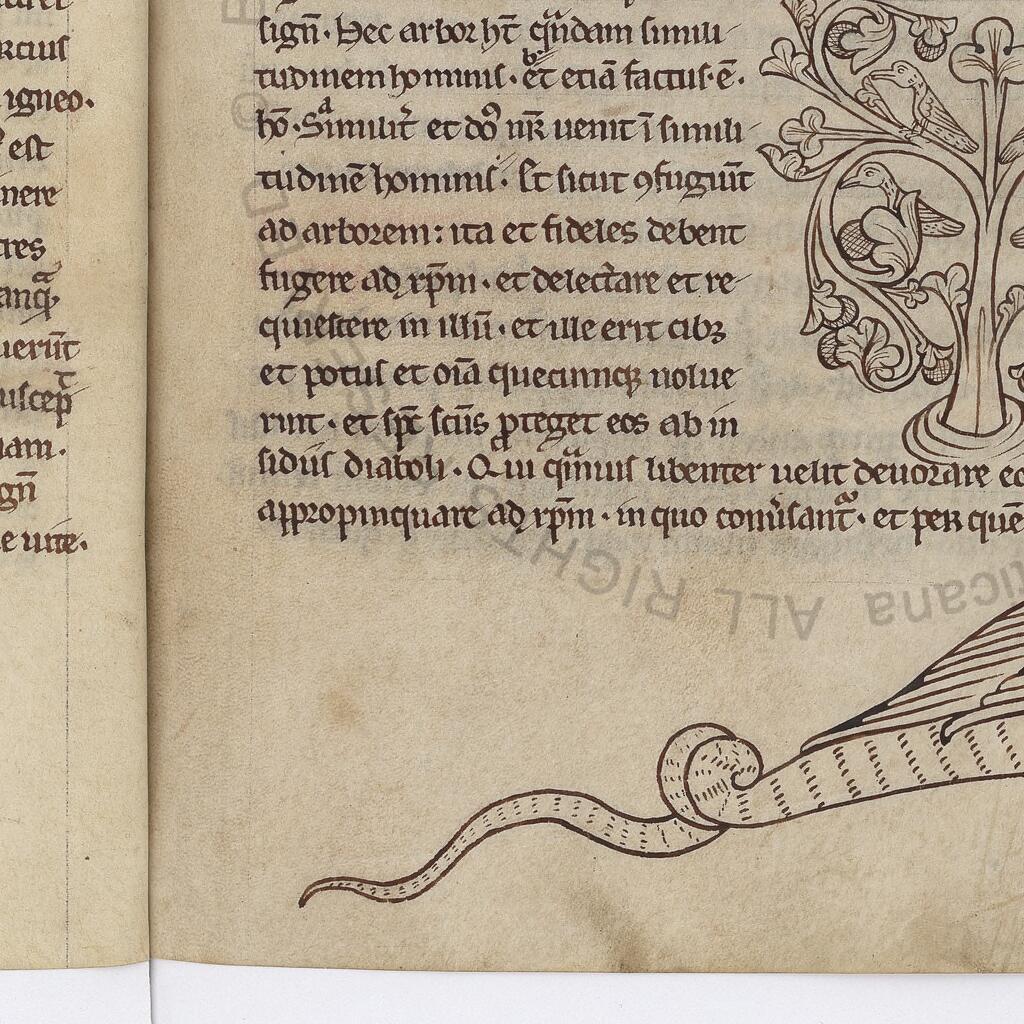 rcius
igneo.
est
nere
tres
anq̄
uerūt
uscep̄
uam.
gn̄
e uite.
sign̄. Hec arbor ht̄ qn̄dam simili
tudinem hominis. et etiā factus. ē.
hō. Similit̄ et do᷒ nr̄ uenit ī simili
tudinē hominis. Et sicut ꝯfugiūt
ad arborem: ita et fideles debent
fugere ad xp̄m. et delectare et re
quiescere in illū. et ille erit cibꝫ
et potus et oīa quecunqꝫ uolue
rint. et sp̄c scūs ꝓteget eos ab in
sidiis diaboli. Qui qͣmuis libenter uelit deuorare eo
appropinquare ad xp̄m. in quo et per quē
ALL RIGHTS
ticana